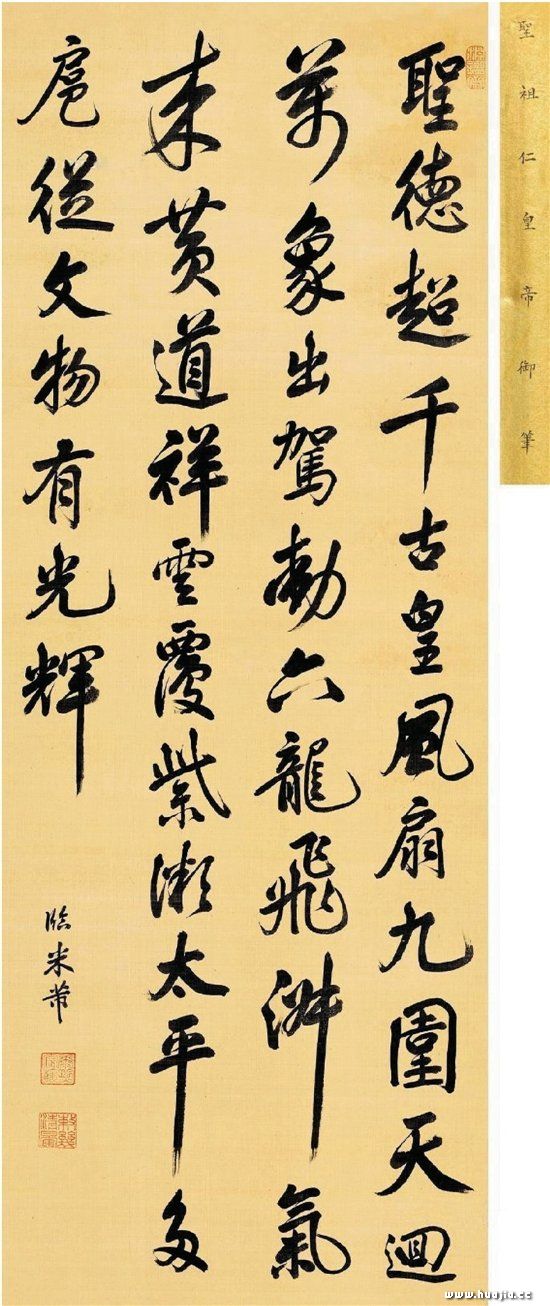 聖祖仁皇帝御筆
聖德超千古皇風扇九圍天迴
萬象出駕動六龍飛淑氣
來黃道祥雲覆紫微太平多
扈從文物有光輝
臨米芾
www.huajia.cc